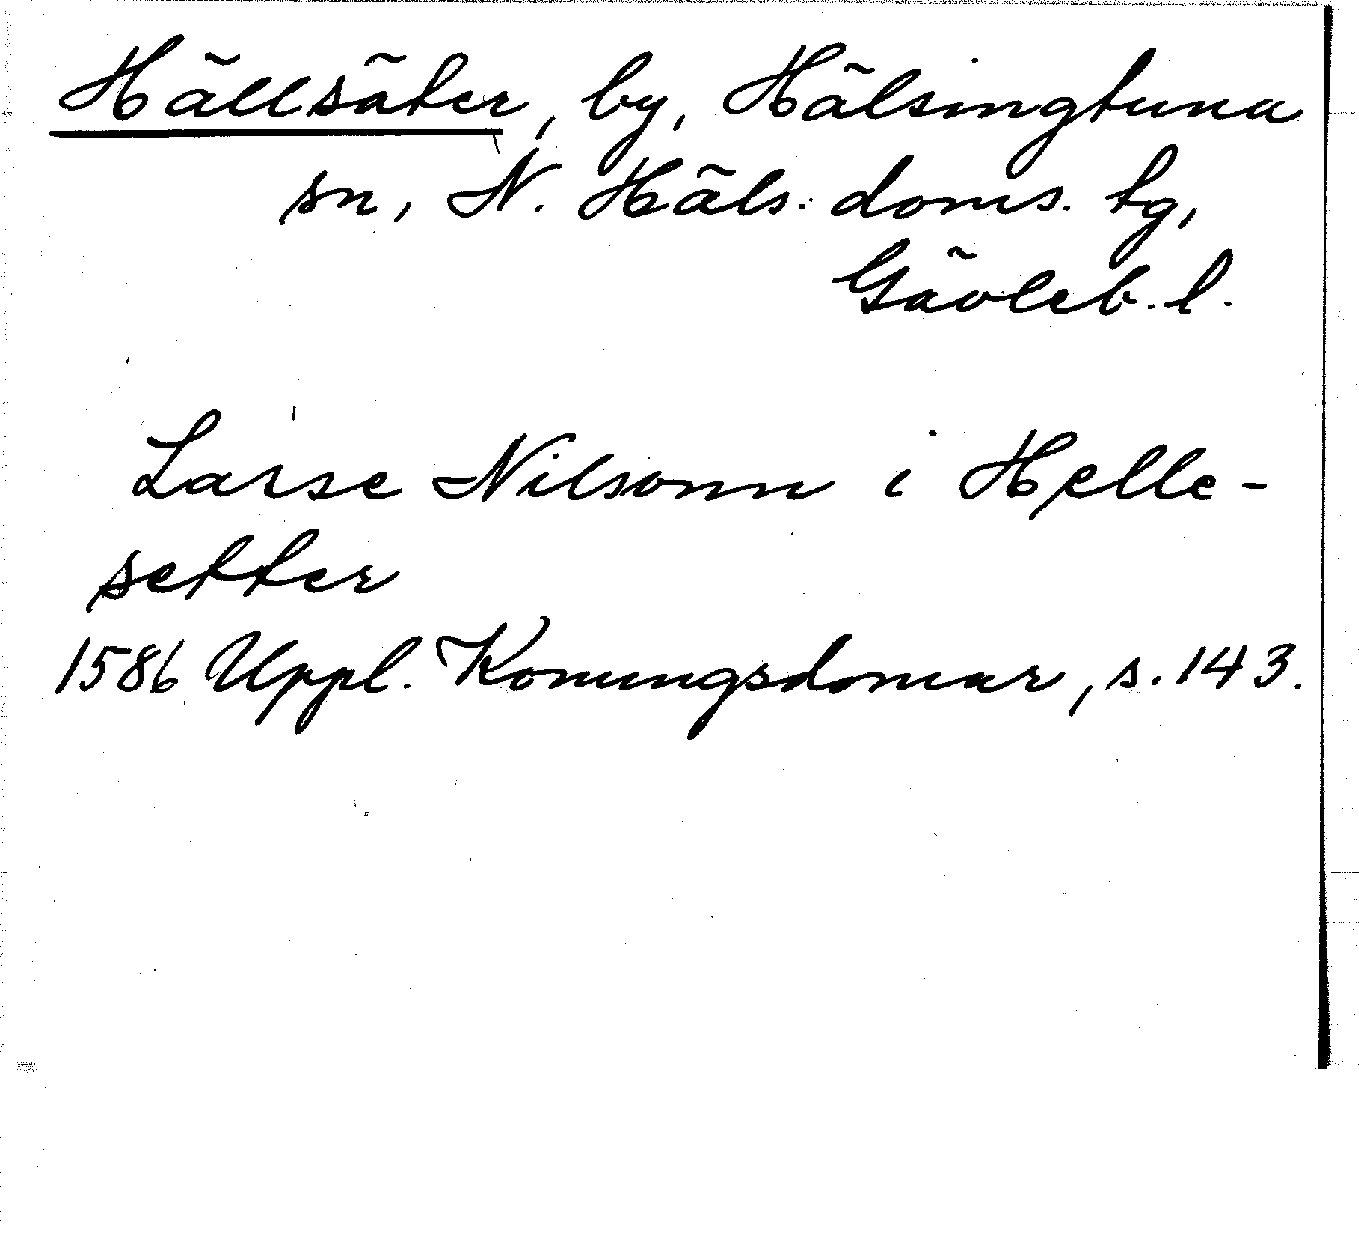 Hällsäter, by, Hälsingtuna
sn, N. Häls. doms. tg,
Gävleb. l.
Larse Nilsonn i Helle-
setter
1586 Uppl. Konungsdomar, s. 143.